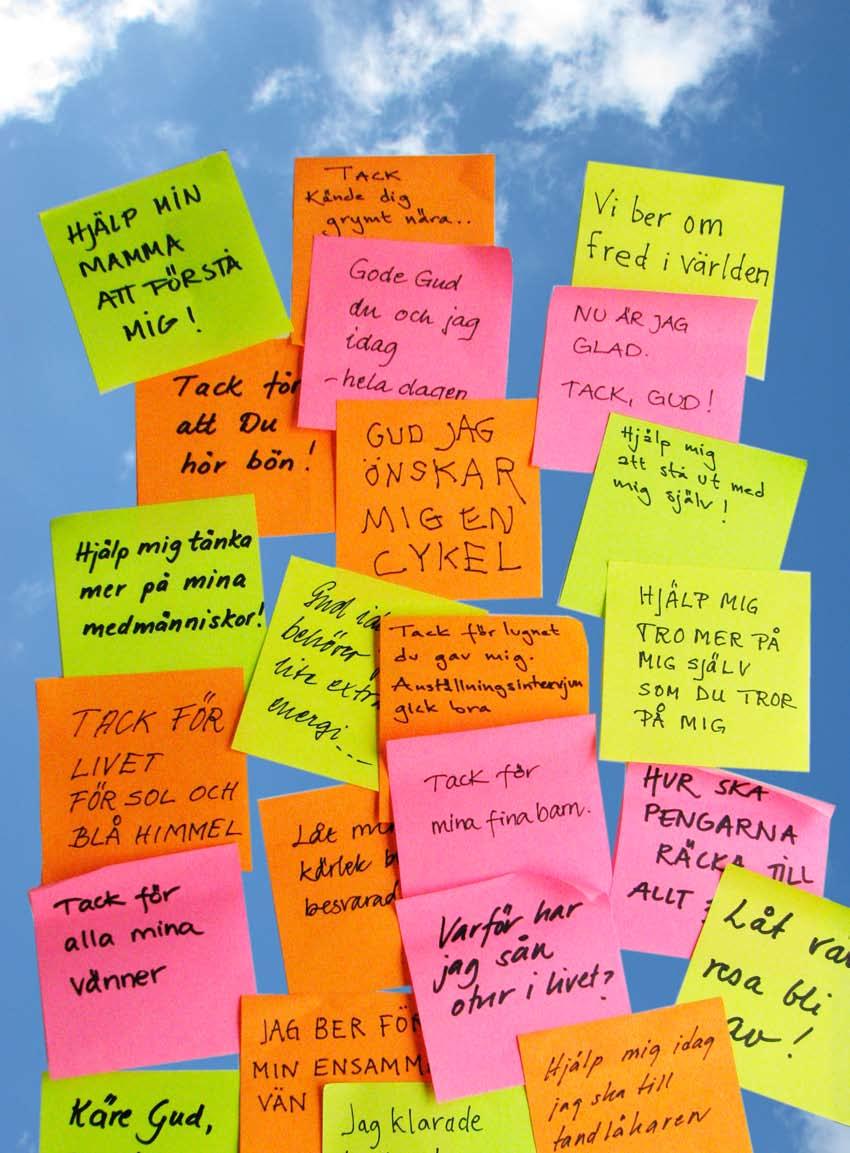 HJÄLP MIN
MAMMA
ATT FÖRSTÅ
MIG!
TACK
Kände dig
grymt nära..
Vi ber om
fred i världen
Gode Gud
du och jag
idag
-hela dagen
NU ÄR JAG
GLAD.
TACK, GUD!
Tack för
att Du
hör bön!
GUD JAG
ÖNSKAR
MIG EN
CYKEL
Hjälp mig
att stå ut med
mig själv!
Hjälp mig tänka
mer på mina
medmänniskor!
Gud
behöver
lite extra
energi...
Tack för lugnet
du gav mig.
Anställningsintervjun
gick bra
HJÄLP MIG
TRO MER PÅ
MIG SJÄLV
SOM DU TROR
PÅ MIG
TACK FÖR
LIVET
FÖR SOL OCH
BLÅ HIMMEL
Låt
kärlek
besvarad
Tack för
mina fina barn.
HUR SKA
PENGARNA
RÄCKA TILL
ALLT
Tack för
alla mina
vänner
Varför har
jag sån
otur i livet?
Låt
resa bli
av!
JAG BER FÖR
MIN ENSAMM
VÄN
Hjälp mig idag
jag ska till
tandläkaren
Käre Gud,
Jag klarade